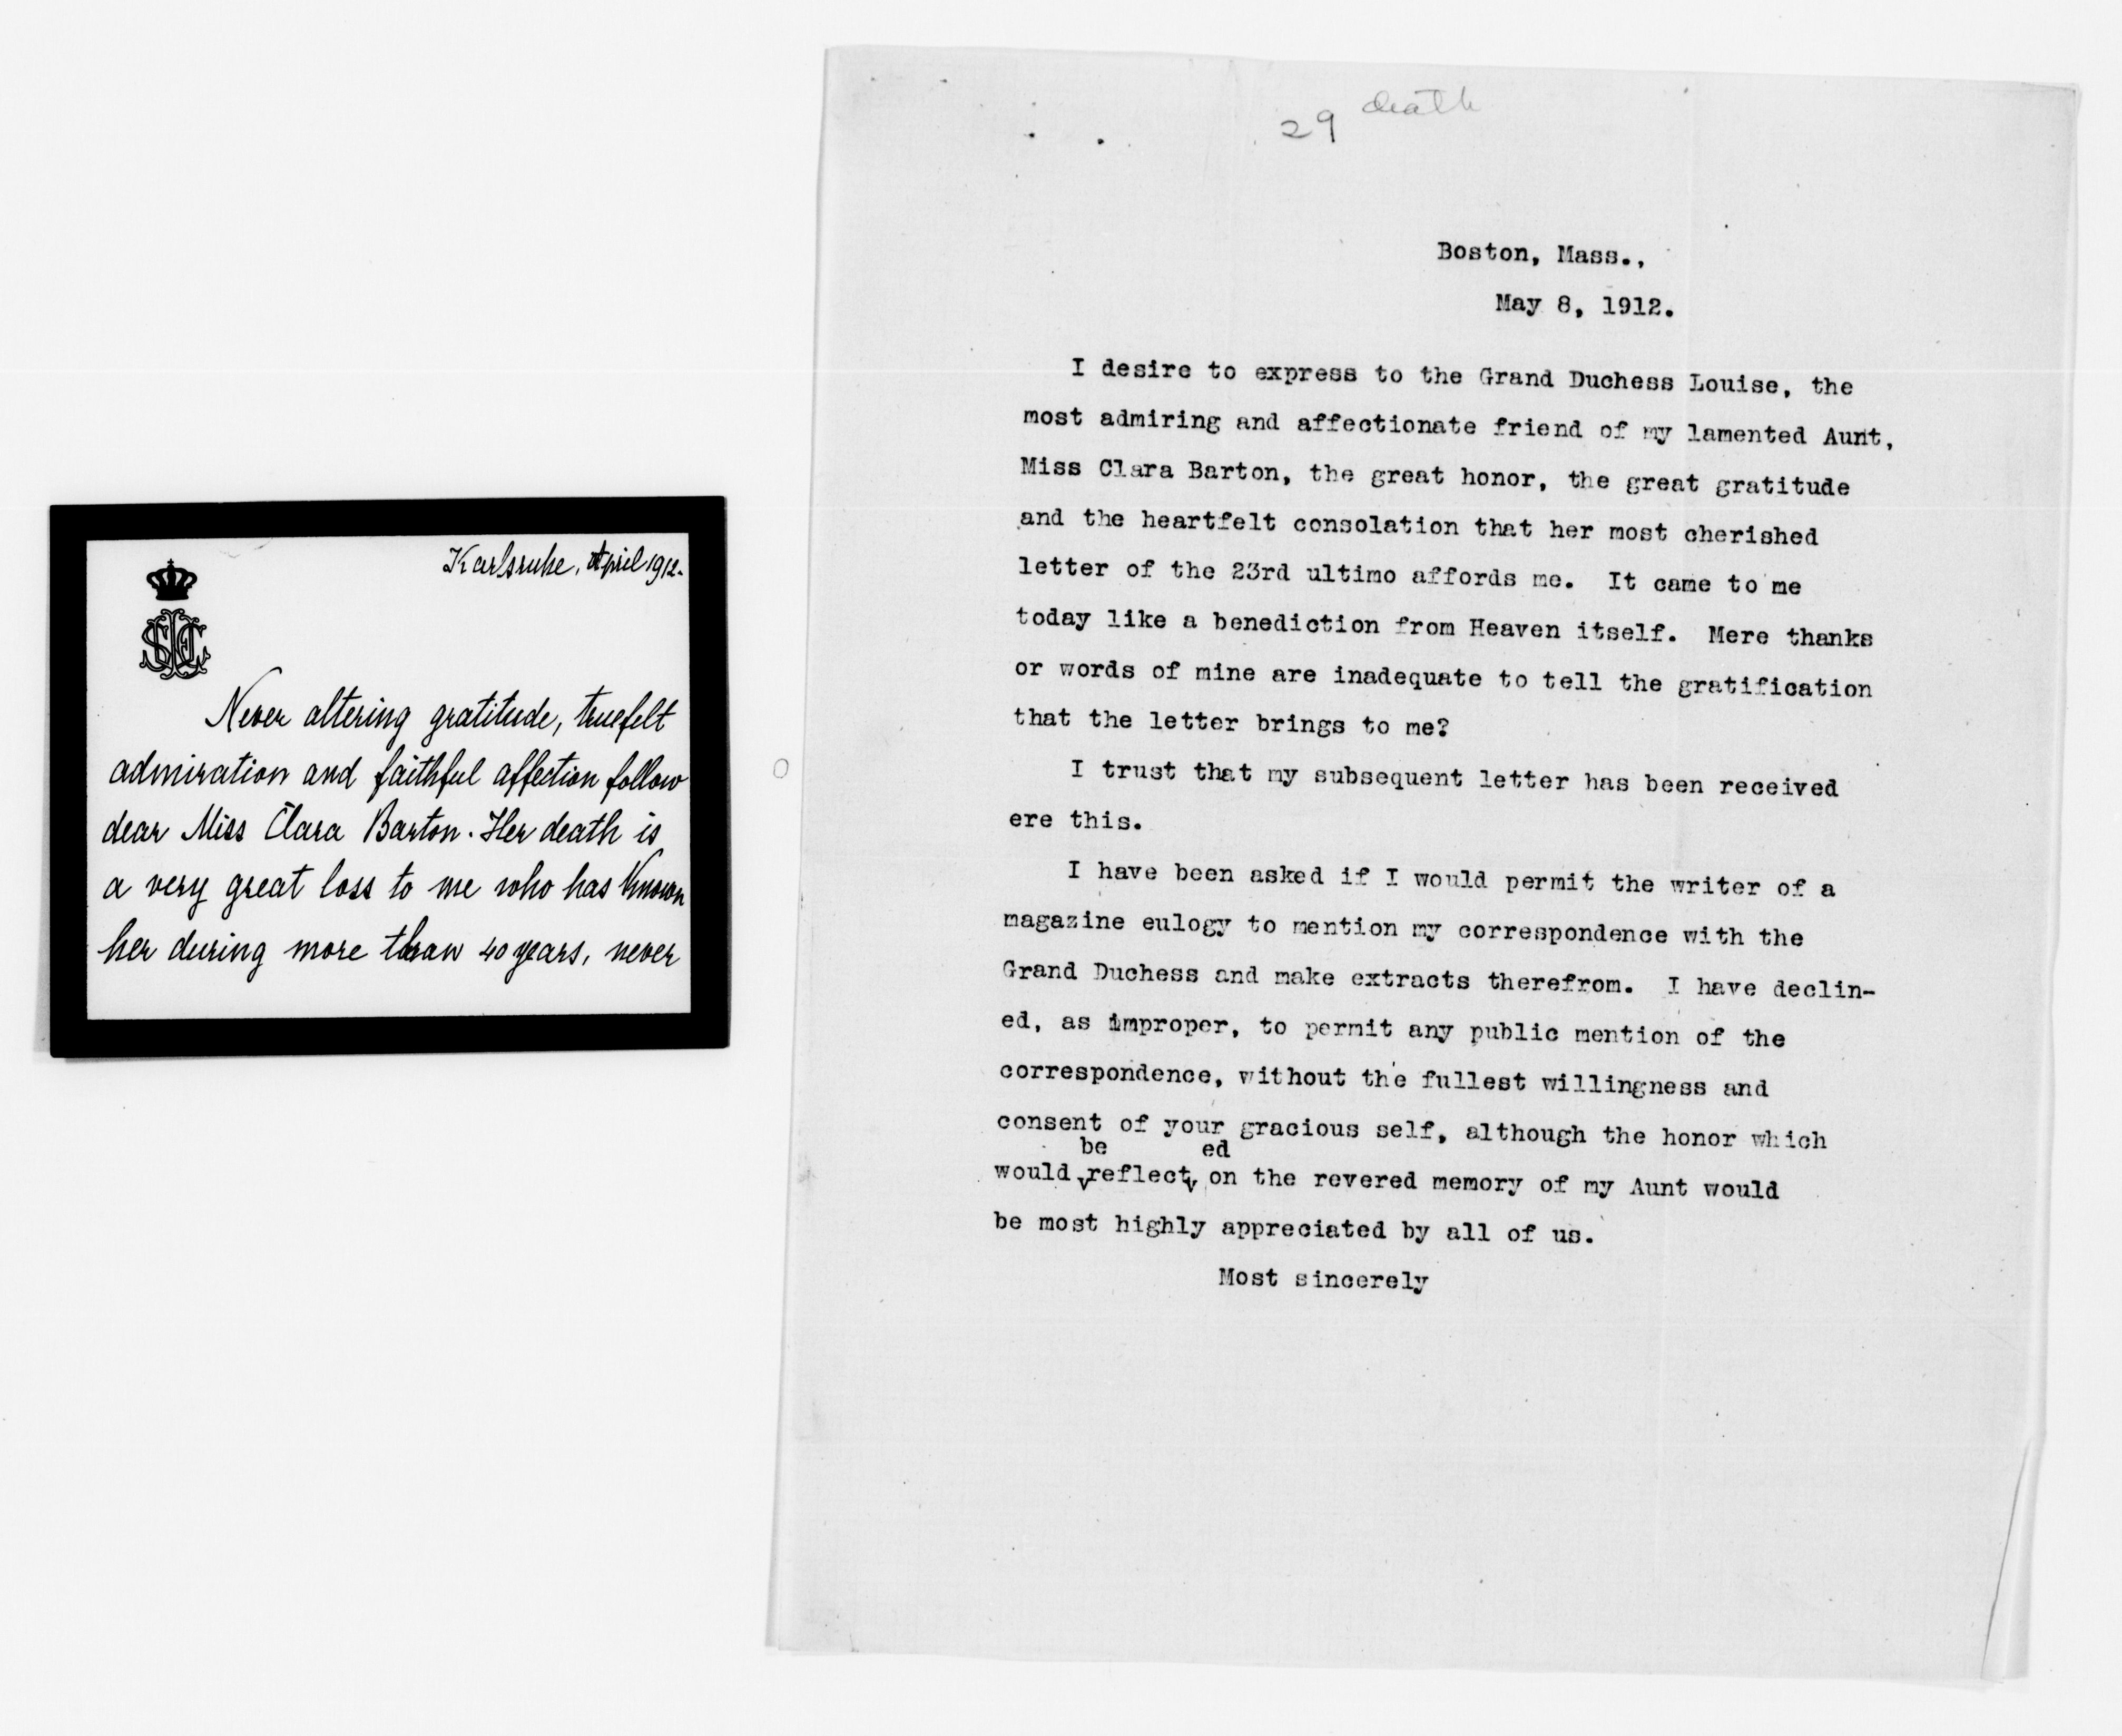 Karlsruhe, April 1912.
Never altering gratitude, truefelt
admiration and faithful affection follow
dear Miss Clara Barton. Her death is
a very great loss to me who has known
her during more than 40 years, never
29 death
Boston, Mass.,
May 8, 1912.
I desire to express to the Grand Duchess Louise, the
most admiring and affectionate friend of my lamented Aunt,
Miss Clara Barton, the great honor, the great gratitude
and the heartfelt consolation that her most cherished
letter of the 23rd ultimo affords me. It came to me
today like a benediction from Heaven itself. Mere thanks
or words of mine are inadequate to tell the gratification
that the letter brings to me?
I trust that my subsequent letter has been received
ere this.
I have been asked if I would permit the writer of a
magazine eulogy to mention my correspondence with the
Grand Duchess and make extracts therefrom. I have declin-
ed, as improper, to permit any public mention of the
correspondence, without the fullest willingness and
consent of your gracious self, although the honor which
be ed
would reflect on the revered memory of my Aunt would
be most highly appreciated by all of us.
Most sincerely